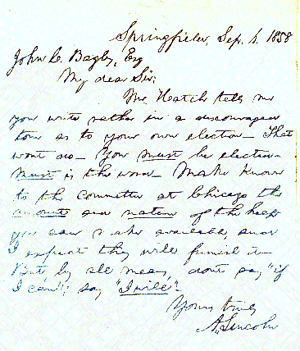 Springfield, Sep. 6. 1858
John C. Bagby, Esq
My dear Sir:
Mr. Hatch tells me
you write rather in a discouraged
tone as to your own election— That
wont do— You must be elected—
Must is the word— Make known
to the committee at Chicago the
amount and nature of the help
you can make available, and
I expect they will furnish it—
But, by all means, dont say "if
I can"; say "I will"
Yours truly
A. Lincoln